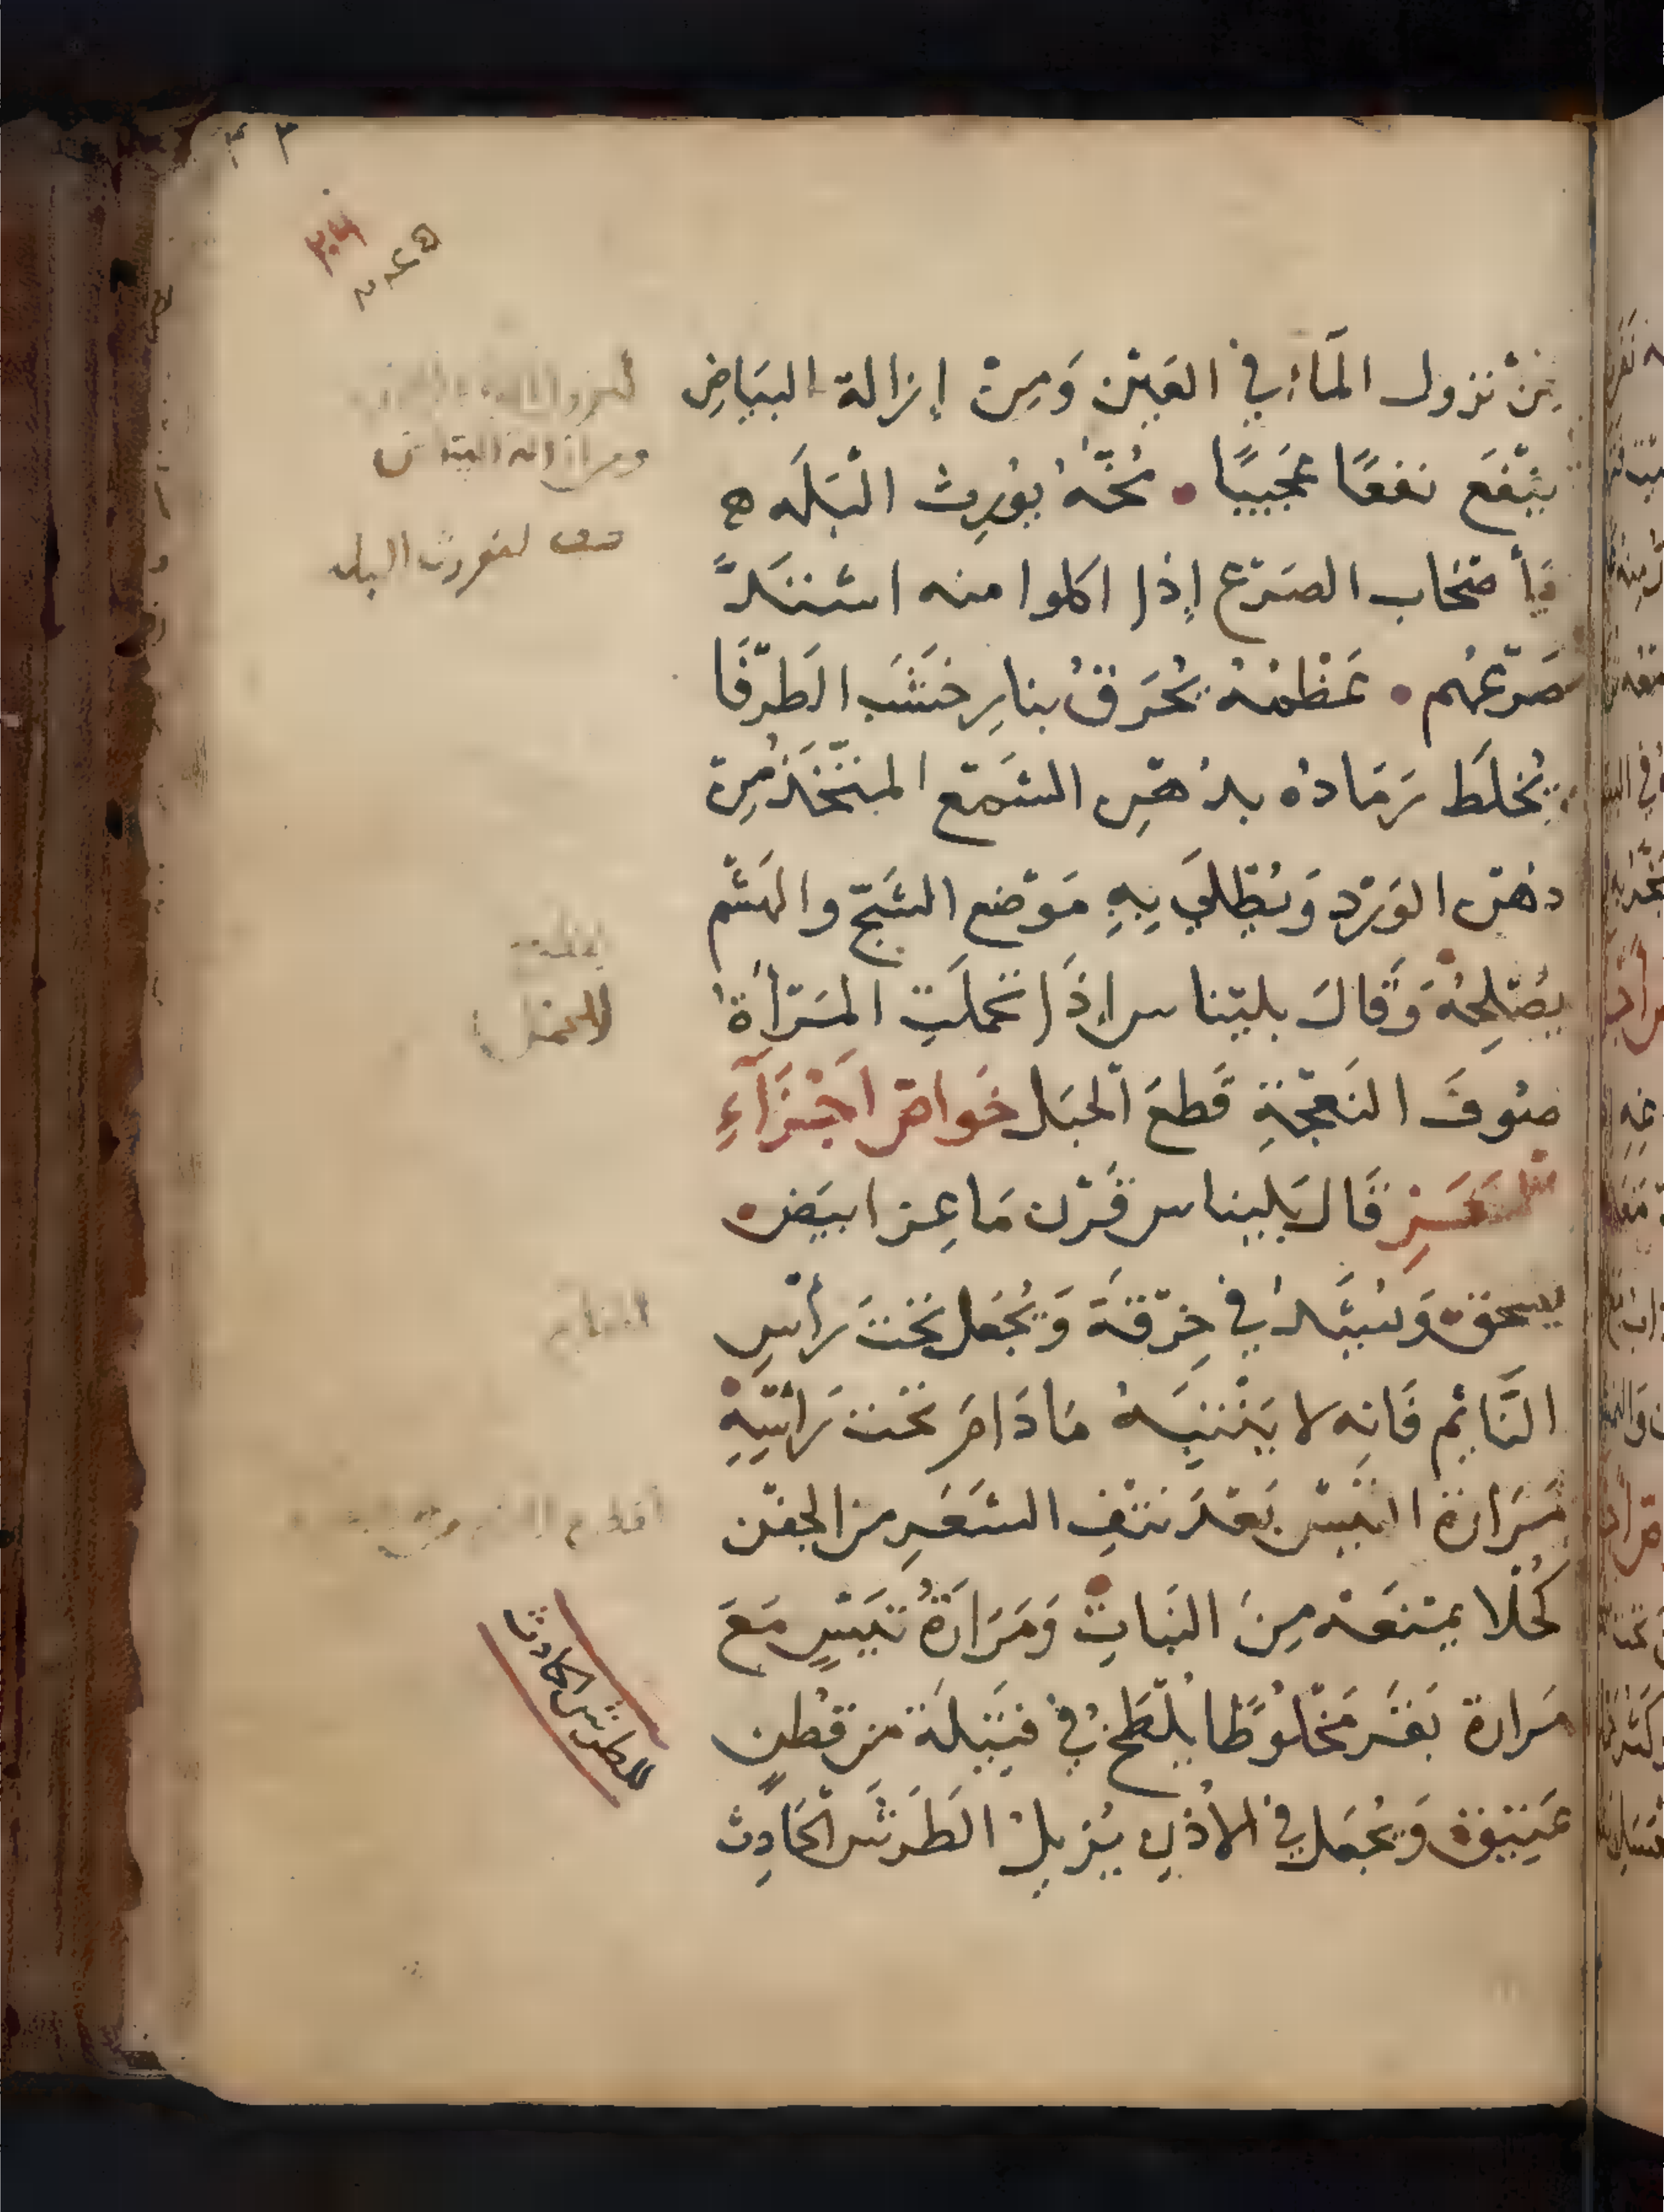 مِنْ نزول المَاء في العَيْن وَمِنْ إزالة البَيَاضِ
يَنْفَع نفعًا عَجَيبًا • مُخَّهُ يُورِث البَلَه ه
وَأصْحَاب الصَرْع إذا اكلوا منه اشتَدَّ
صَرْعُهُم • عَظْمُهُ يُحَرَقُ بنارِ خَشَب الَطرْفَا
يُخلَط رَمَادُه بدُهْنِ الشَمْع المتّخَذ مِنْ
دهْن الوَرْدِ وَيُطْلَي بِهِ مَوْضع الشَجّ والهَشْم
يُصْلِحُهُ وَقَالَ بليْناس إذَا تحملَتِ المَرْأةُ
صُوفَ النَعْجَةِ قَطعَ الحبَل خَواصّ اَجْزَآءِ
قَالَ بَلِيناس قَرْن مَاعِز ابيَض •
يسحق وَيُشَدُ في خِرْقَة وَيُجْعَل تَحْتَ رَأسِ
النَّائِم فَانِه لا يَنْتَبِه مَا دَامَ تَحْت رَأسِهِ
مَرَارة التَيْس بَعْدَ نتْفِ الشَعَرِ من الجفْن
كُحْلا يمْنَعه مِنَ النَباتِ وَمَرَارَةُ تَيْسٍ مَعَ
مَرارة بَقَر مَخْلُوطًا يُلْطَخ في فتِيْلَة من قُطنٍ
عَتِيْقة وَيُجْعَل في الأذْنِ يُزيلُ الطَرَش الحَادِث
ومن ازالة البياض
البله
للحمل
للطرش الحادث